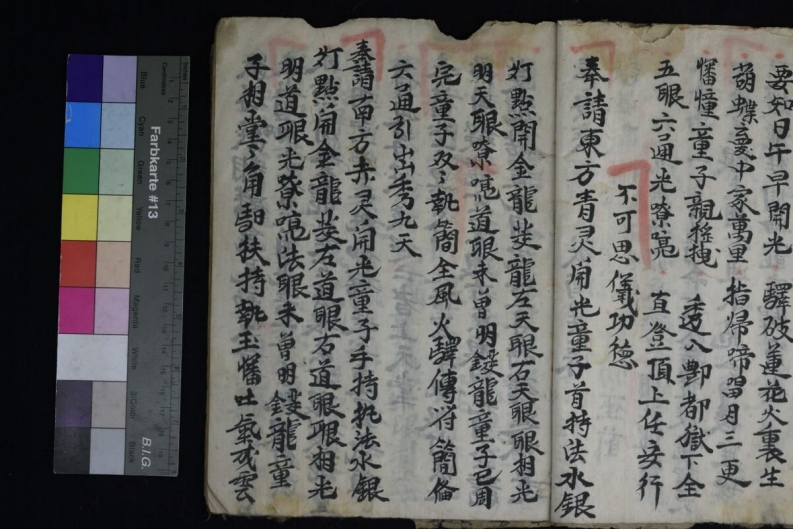 要知日午早開光 驛破蓮花火裏生
蝴蝶夢中家萬里 指帰啼
月三更
幡幢童子親搖拽 透入酆都獄下全
五眼六通光嘹喨 直登頂上任安行
不可思儀功德
奉請東方青灵開光童子首持法水銀
灯點開金龍
龍左天眼右天眼眼相光
明天眼嘹喨道眼未曾明
龍童子已周
完童子双〻執
全風火驛傳符簡俻
六通引出秀九天
奉請南方赤灵開光童子手持执法水銀
灯點開金龍
左道眼右道眼眼相光
明道眼光嘹喨法眼未曾明
龍童
子
扶持執玉幡吐氣成雲
Farbkarte #13
B.I.G.
Blue
Cyan
Green
Yellow
Red
Magenta
White
3/Color
Black